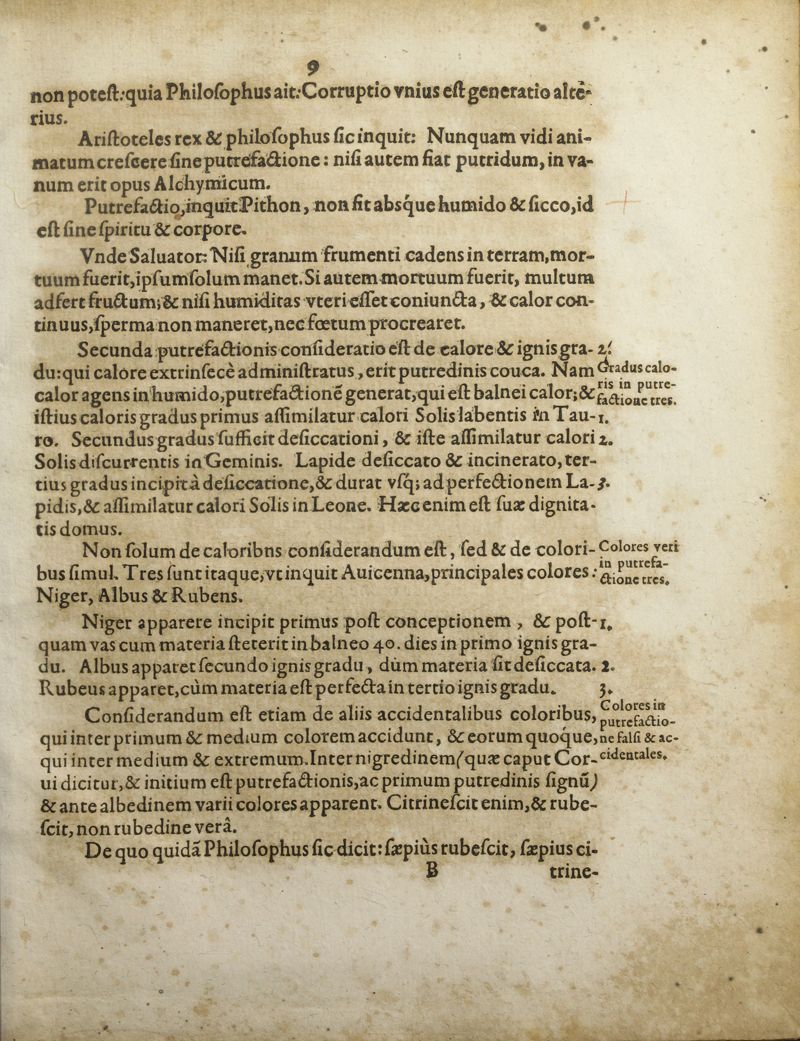 9
non poteſt: quia Philoſophus ait: Corruptio vnius eſt generatio alte-
rius.
Ariſtoteles rex & philoſophus ſic inquit: Nunquam vidi ani-
matum creſcere ſine putrefactione: niſi autem fiat putridum, in va-
num erit opus Alchymicum.
Putrefactio, inquit Pithon, non fit absque humido & ſicco, id
eſt ſine ſpiritu & corpore.
Vnde Saluator: Niſi granum frumenti cadens in terram, mor-
tuum fuerit, ipſum ſolum manet. Si autem mortuum fuerit, multum
adfert fructum; & niſi humiditas vteri eſſet coniuncta, & calor con-
tinuus, ſperma non maneret, nec fœtum procrearet.
Secunda putrefactionis conſideratio eſt de calore & ignis gra- 2.
du: qui calore extrinſecè adminiſtratus, erit putredinis couca. Nam Gradus calo-
calor agens in humido, putrefactionē generat, qui eſt balnei calor; & ris in putre-
factione tres.
iſtius caloris gradus primus aſſimilatur calori Solis labentis in Tau- 1.
ro. Secundus gradus ſufficit deſiccationi, & iſte aſſimilatur calori 2.
Solis diſcurrentis in Geminis. Lapide deſiccato & incinerato, ter-
tius gradus incipit à deſiccatione, & durat vſq; ad perfectionem La- 3.
pidis, & aſſimilatur calori Solis in Leone. Hæc enim eſt ſuæ dignita-
tis domus.
Non ſolum de caloribns conſiderandum eſt, ſed & de colori- Colores veri
bus ſimul. Tres ſunt itaque, vt inquit Auicenna, principales colores: in putrefa-
ctione tres.
Niger, Albus & Rubens.
Niger apparere incipit primus poſt conceptionem, & poſt- 1.
quam vas cum materia ſteterit in balneo 40. dies in primo ignis gra-
du. Albus apparet ſecundo ignis gradu, dùm materia ſit deſiccata. 2.
Rubeus apparet, cùm materia eſt perfecta in tertio ignis gradu. 3.
Conſiderandum eſt etiam de aliis accidentalibus coloribus, Colores in
putrefactio-
qui inter primum & medium colorem accidunt, & eorum quoque, ne falſi & ac-
qui inter medium & extremum. Inter nigredinem (quæ caput Cor- cidentales.
ui dicitur, & initium eſt putrefactionis, ac primum putredinis ſignū)
& ante albedinem varii colores apparent. Citrineſcit enim, & rube-
ſcit, non rubedine verâ.
De quo quidā Philoſophus ſic dicit: ſæpiùs rubeſcit, ſæpius ci-
B trine-